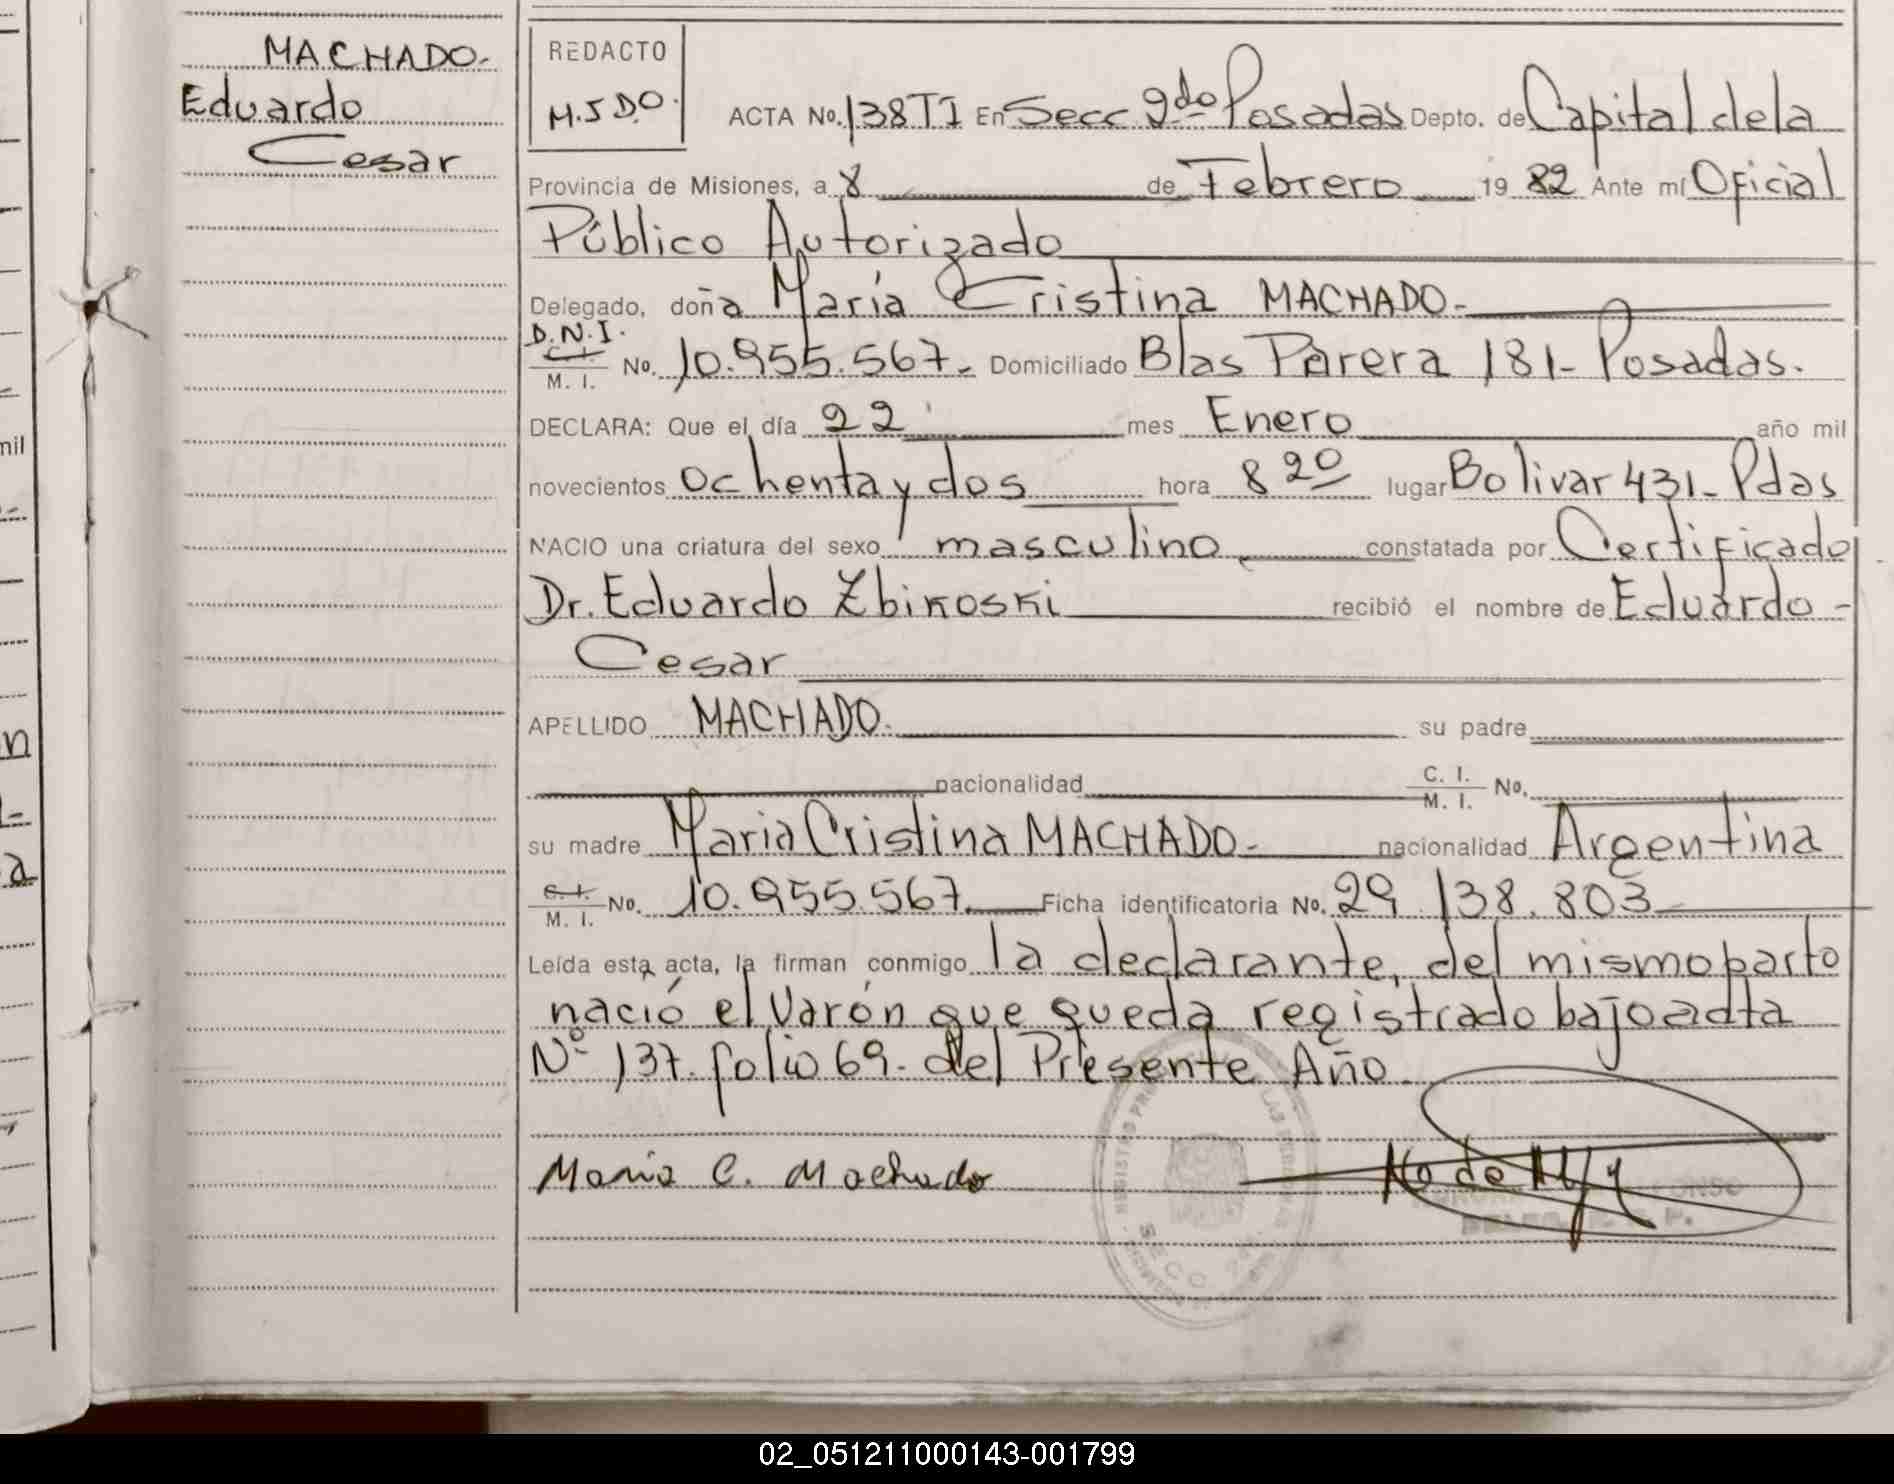 MACHADO-
Eduardo
Cesar
REDACTO
M.J D.O.
ACTA No. 138 TI En Secc 9do Posadas Depto. de Capital de la
Provincia de Misiones, a 8 de Febrero 19 82 Ante mí Oficial
Público Autorizado
Delegado, doña María Cristina MACHADO-
D.N.I.
C.I. M. I. No. 10.955.567- Domiciliado Blas Parera 181- Posadas.
DECLARA: Que el día 22 mes Enero año mil
novecientos ochenta y dos hora 8 20 lugar Bolivar 431- Pdas
NACIO una criatura del sexo masculino constatada por Certificado
Dr. Eduardo Zbikoski recibió el nombre de Eduardo-
Cesar
APELLIDO MACHADO. su padre
nacionalidad C. I. M. I. No.
su madre Maria Cristina MACHADO- nacionalidad Argentina
C.I. M. I. No. 10.955.567. Ficha identificatoria No. 29.138.803
Leída esta acta, la firman conmigo la declarante, del mismo parto
nació el Varón que queda registrado bajo acta
Nº 137. folio 69- del Presente Año
Maria C. Machado
REGISTRO
SECC
mil
n
a
02_051211000143-001799